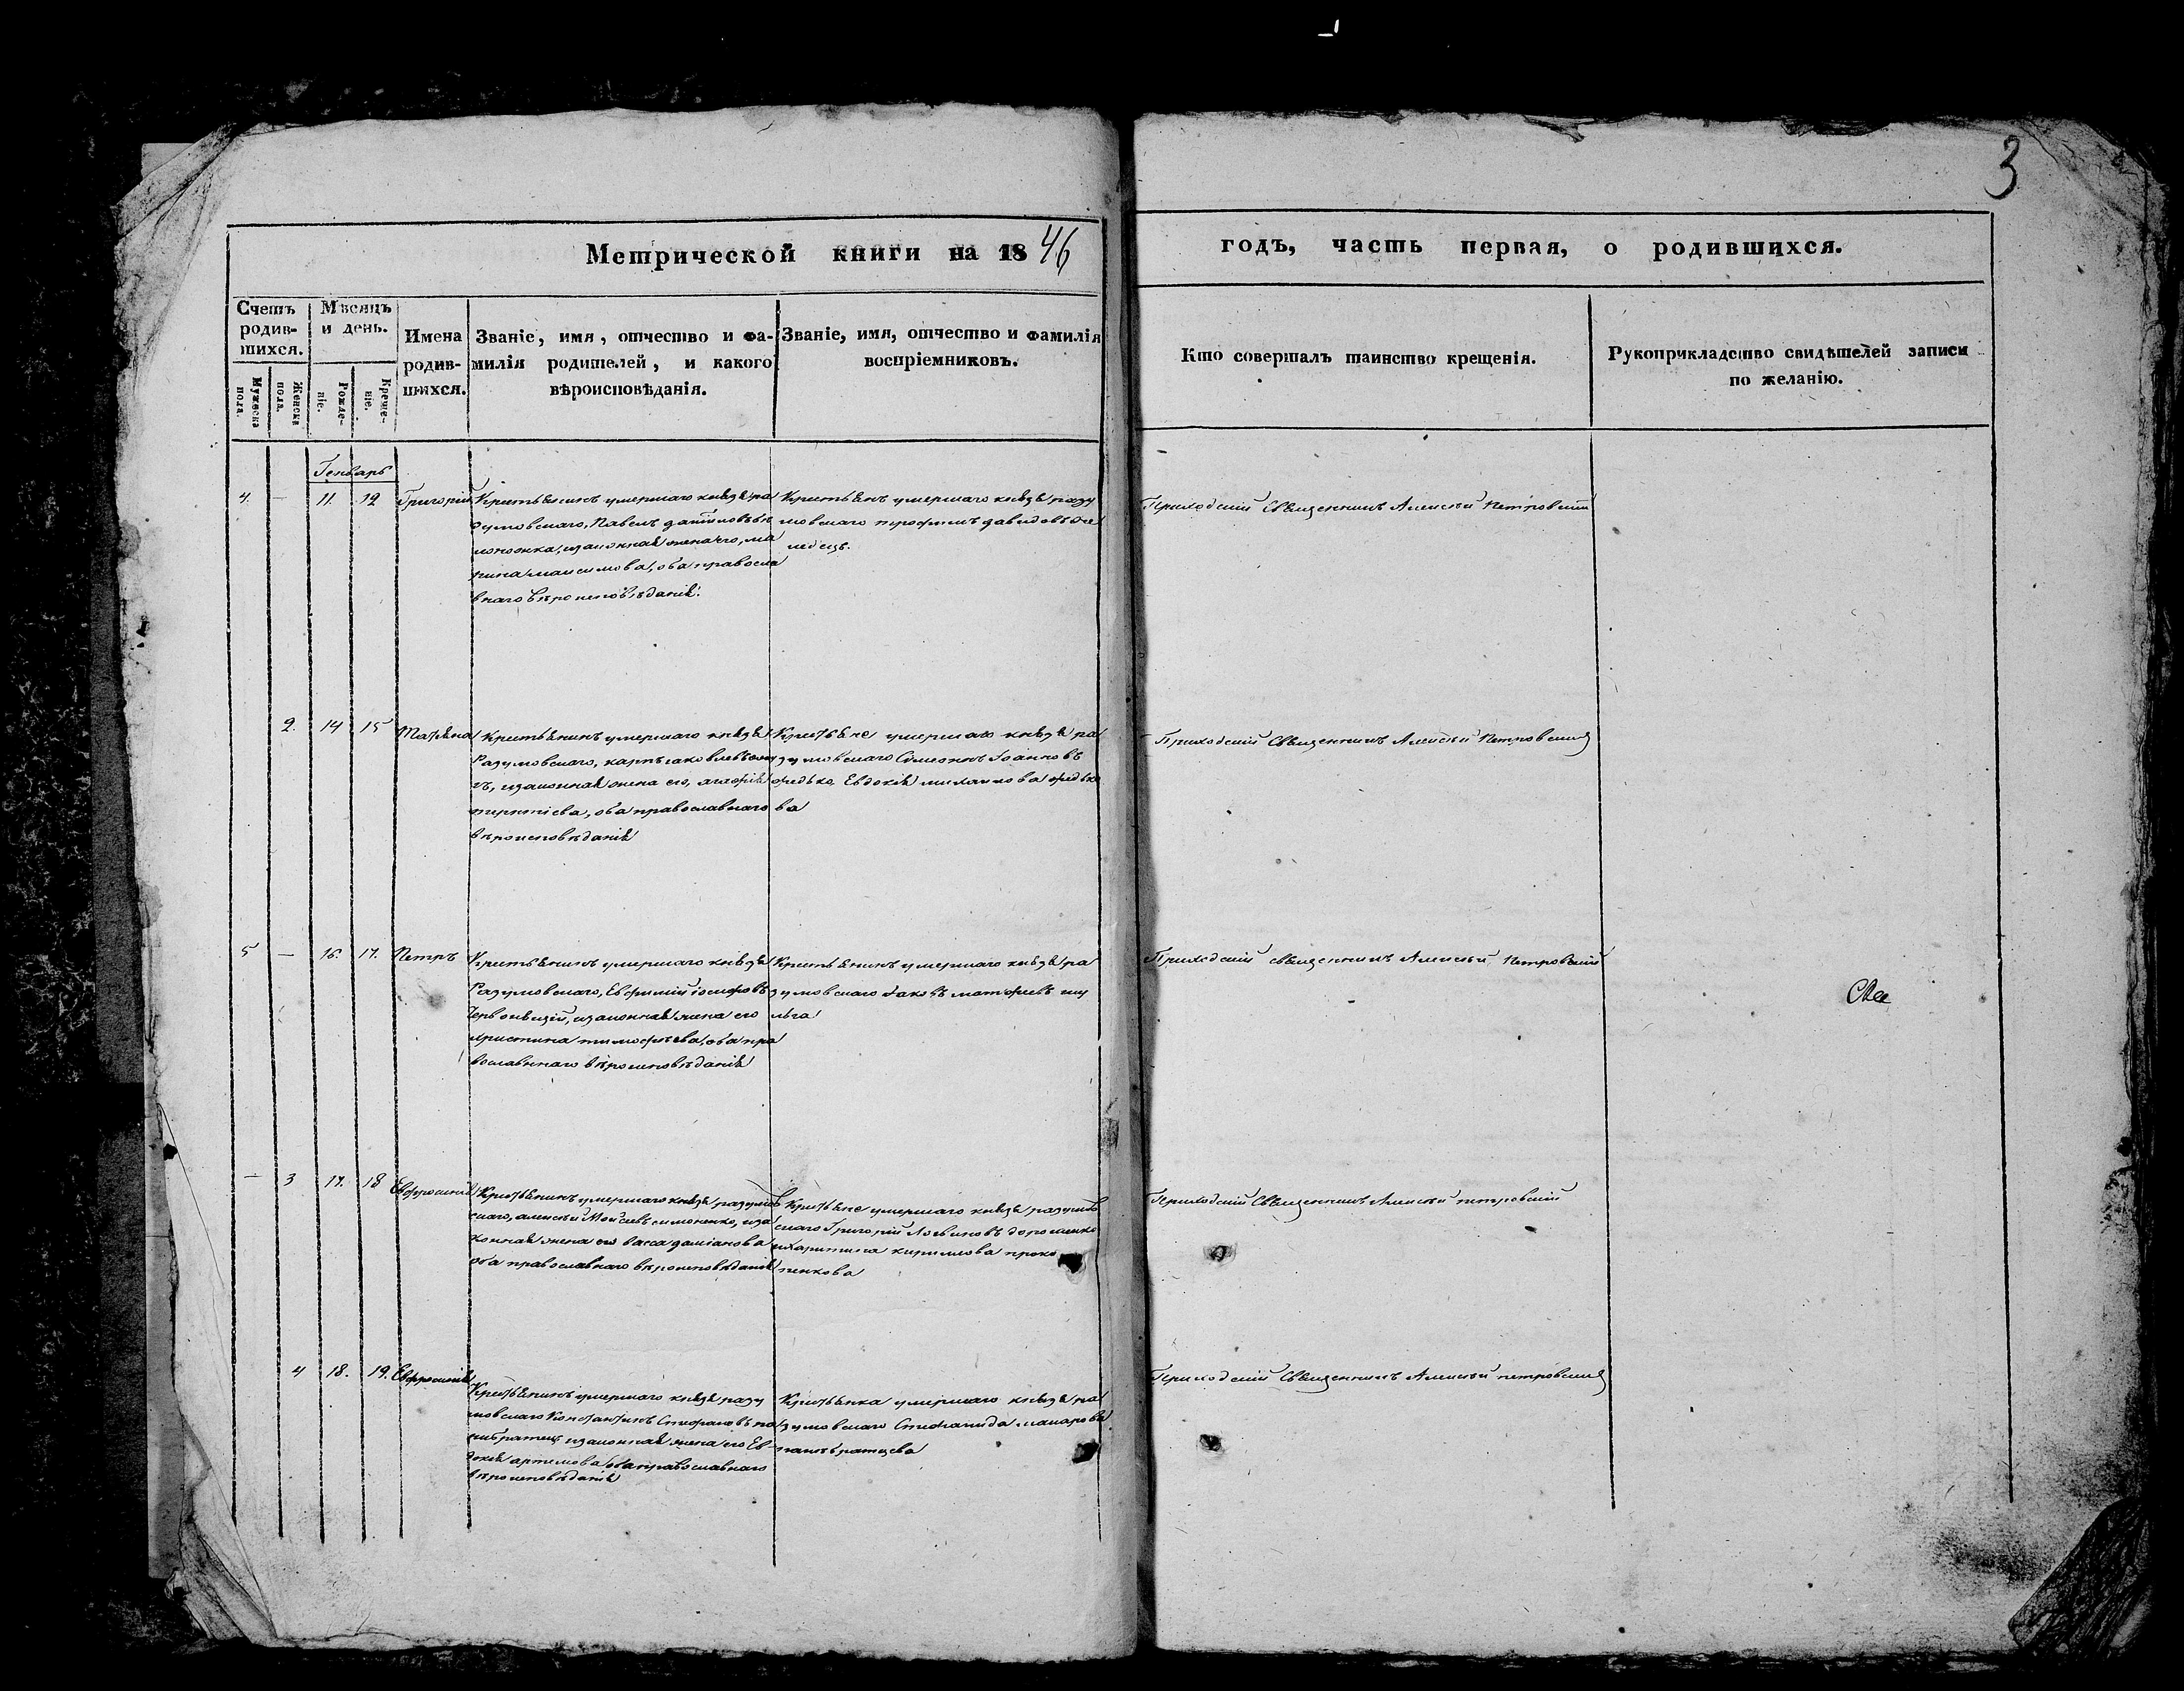 3
Метрической книги на 1846 годъ, часть первая, о родившихся.
Счетъ родив-шихся.
Мужеска пола.
Женска пола.
Мѣсяцъ и день.
Рожде-ніе.
Креще-ніе.
Имена родив-шихся.
Званіе, имя, отчество и фа-милія родителей, и какого вѣроисповѣданія.
Званіе, имя, отчество и фамилія воспріемниковъ.
Кто совершалъ таинство крещенія.
Рукоприкладство свидѣтелей записи по желанію.
Генварь
4. — 11. 12 Григорій
Крестьянинъ умершаго князя ра
зумовскаго, Павелъ даніиловъ
законная жена его, ма
рина максимова, оба правосла
внаго вѣроисповѣданія.
Крестьянъ умершаго князя разу
мовскаго трофимъ давидовъ
Приходскій Священникъ Алексѣй Петровскій
2. 14 15 Татіяна
Крестьянинъ умершаго князя
Разумовскаго, карпъ іаковлевъ
законная жена его, агафія
терентіева, оба православнаго
вѣроисповѣданія
Крестьяне умершаго князя ра
зумовскаго Симеонъ Іоанновъ
федько, Евдокія михаилова федько
ва
Приходскій Священникъ Алексѣй Петровскій
5 — 16. 17. Петръ
Крестьянинъ умершаго князя
Разумовскаго, Евфимій іосифовъ
законная жена его
христина тимофѣева, оба пра
вославнаго вѣроисповѣданія
Крестьянинъ умершаго князя ра
зумовскаго Іаковъ матфіевъ шу
льга
Приходскій священникъ Алексѣй Петровскій
— 3 17. 18 Евфросинія
Крестьянинъ умершаго князя разумов
скаго, алексѣй Моисіевъ симоненко, иза
конная жена его васса даміанова
оба православнаго вѣроисповѣданія
Крестьяне умершаго князя разумов
скаго Григорій Логвиновъ дорошенко
и харитина кириллова проко
пенкова
Приходскій Священникъ Алексѣй петровскій
4 18. 19. Евфросинія
Крестьянинъ умершаго князя разу
мовскаго Константинъ Стефановъ
законная жена его Ев
докія артемова оба православнаго
вѣроисповѣданія
Крестьянка умершаго князя ра
зумовскаго Стефанида макарова
Приходскій Священникъ Алексѣй петровскій